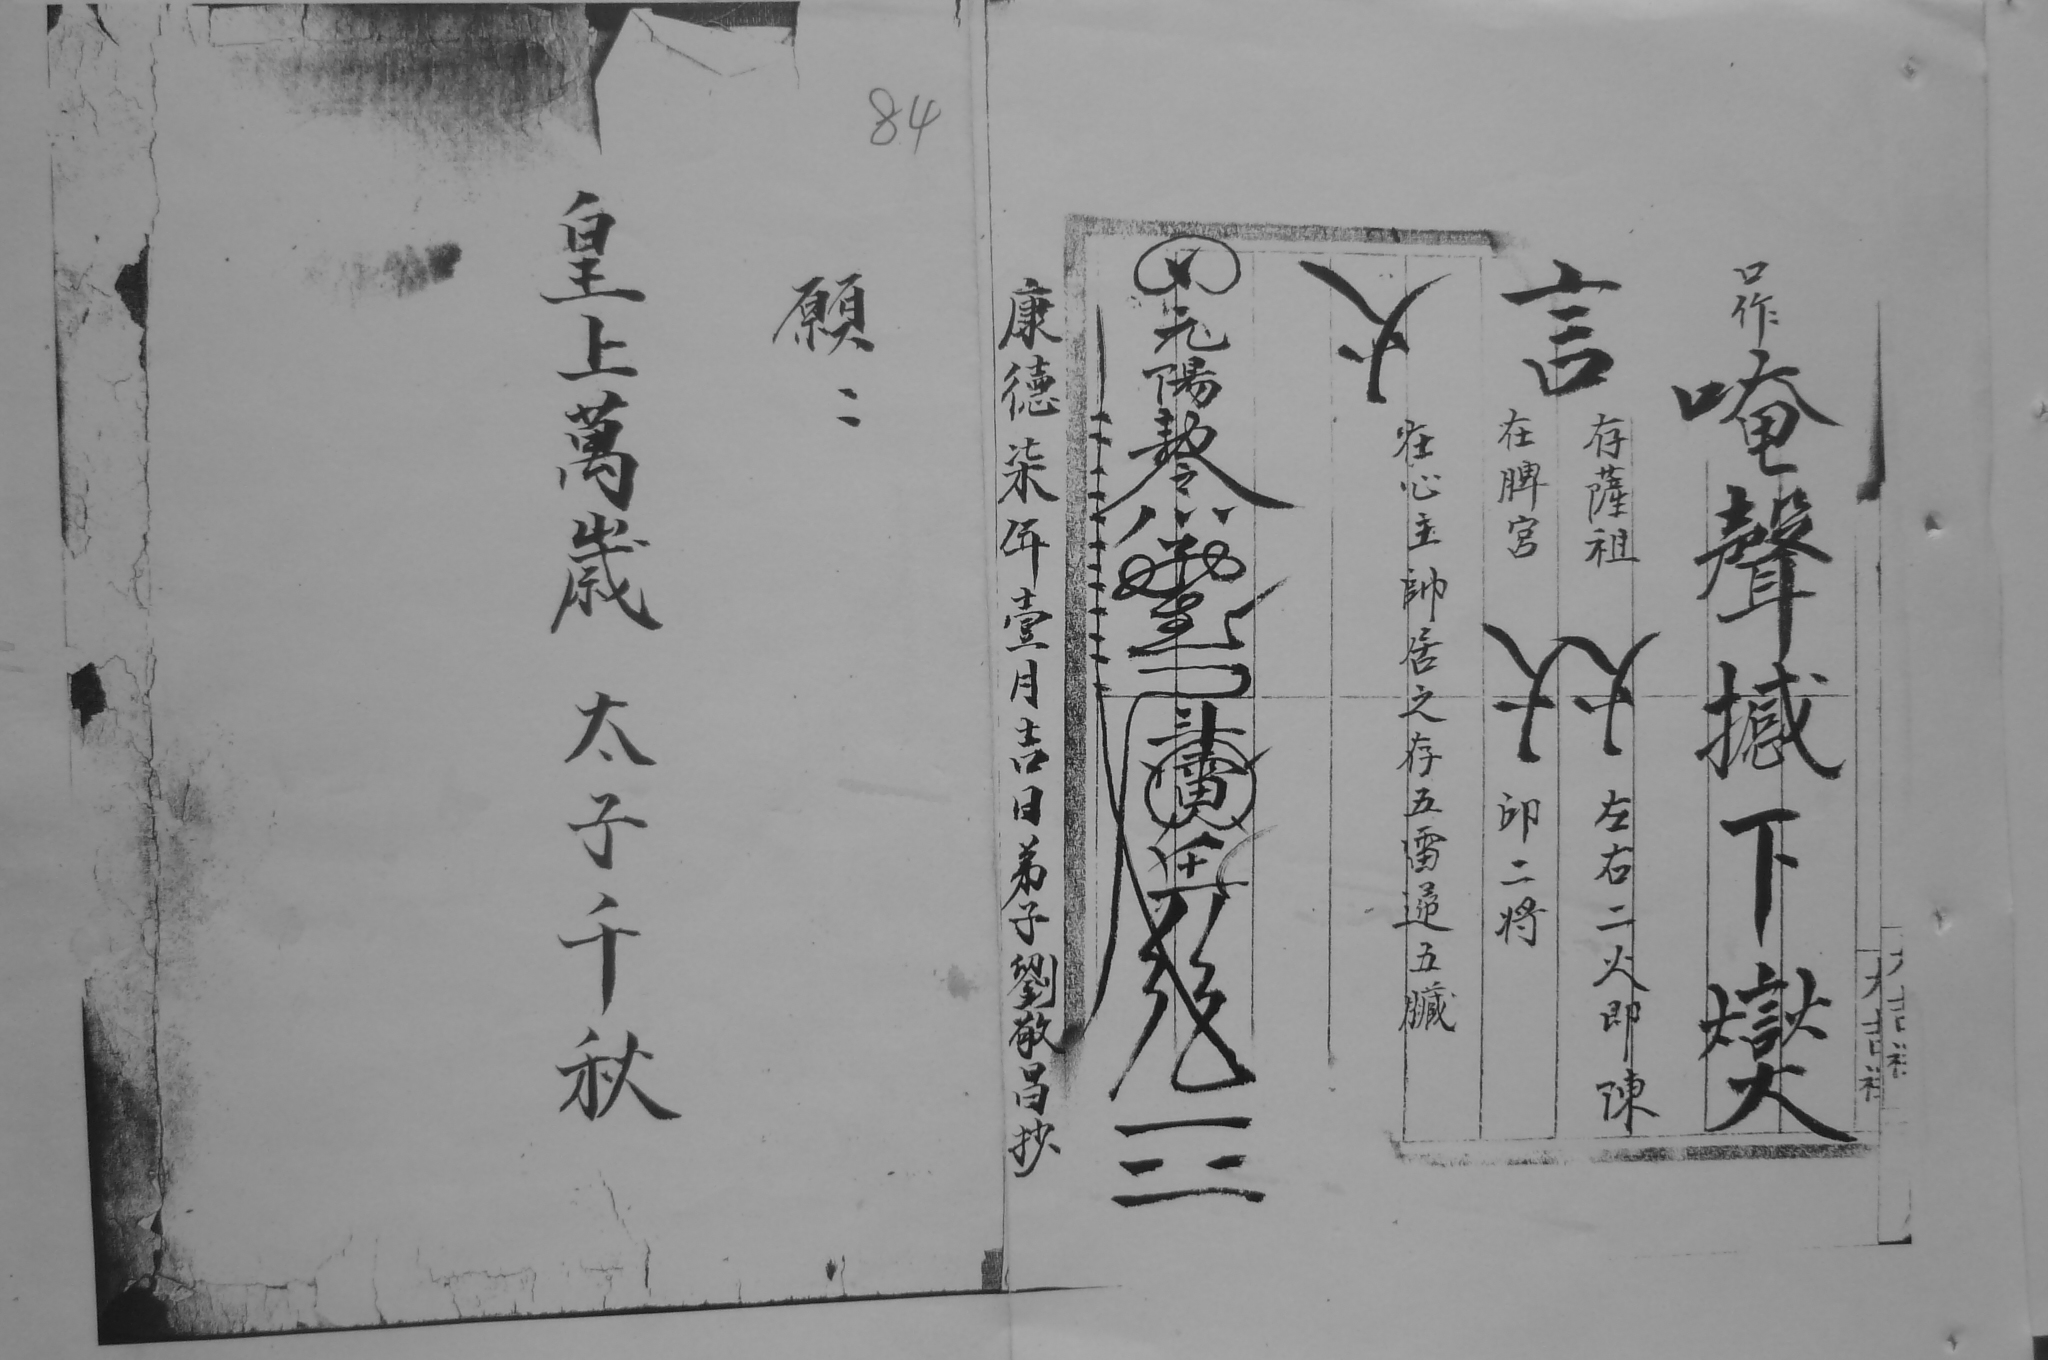 口作唵聲撼下嶽火
言
存薩祖
左右二火即陳
在脾宮
印二將
在心主帥居之存五雷遞五臟
元陽
康德柒年壹月吉日弟子劉敬昌抄
84
願〻
皇上萬歲 太子千秋